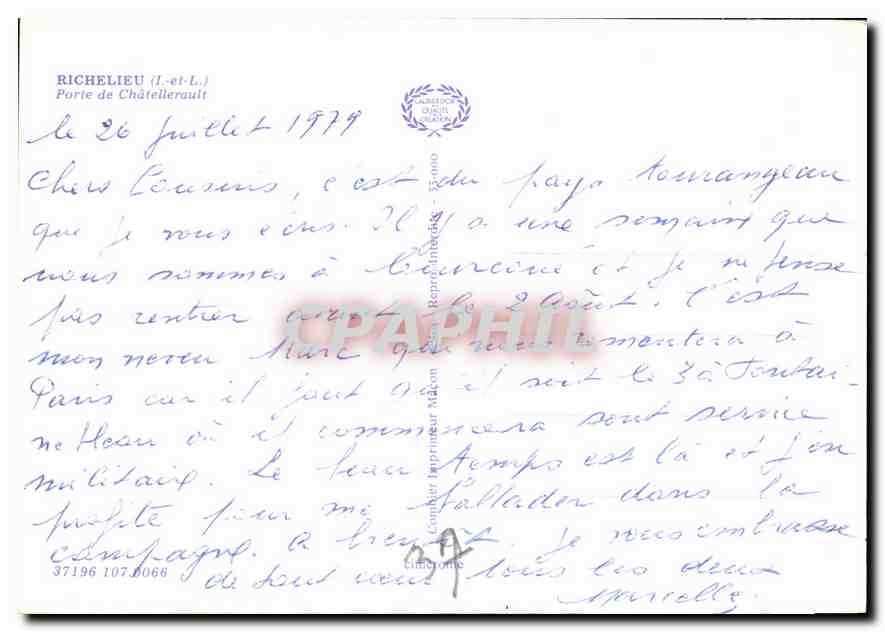 RICHELIEU (I.-et-L.)
Porte de Châtellerault
LAURIER D'OR
QUALITÉ
CRÉATION
le 26 Juillet 1979
Chers Cousins, c'est du pays tourangeau
que je vous écris. Il y a une semaine que
nous sommes à et je ne pense
pas rentrer avant le 2 août. C'est
mon neveu Marc qui me remontera à
Paris car il faut qu'il soit le 3 à Fontai-
nebleau où il commencera sont service
militaire. Le beau temps est là et j'en
profite pour me ballader dans la
campagne. A bientôt. Je vous embrasse
de tout cœur tous les deux
Marcelle.
37196 107.0066
Combier Imprimeur Mâcon
Repro. Interdite - 33-000
cimcrome
CPAPHIL